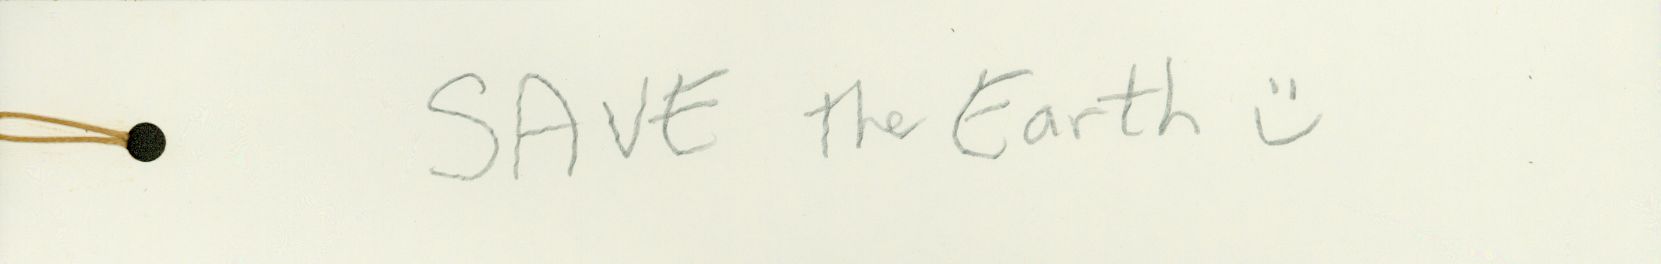 SAVE the Earth :)